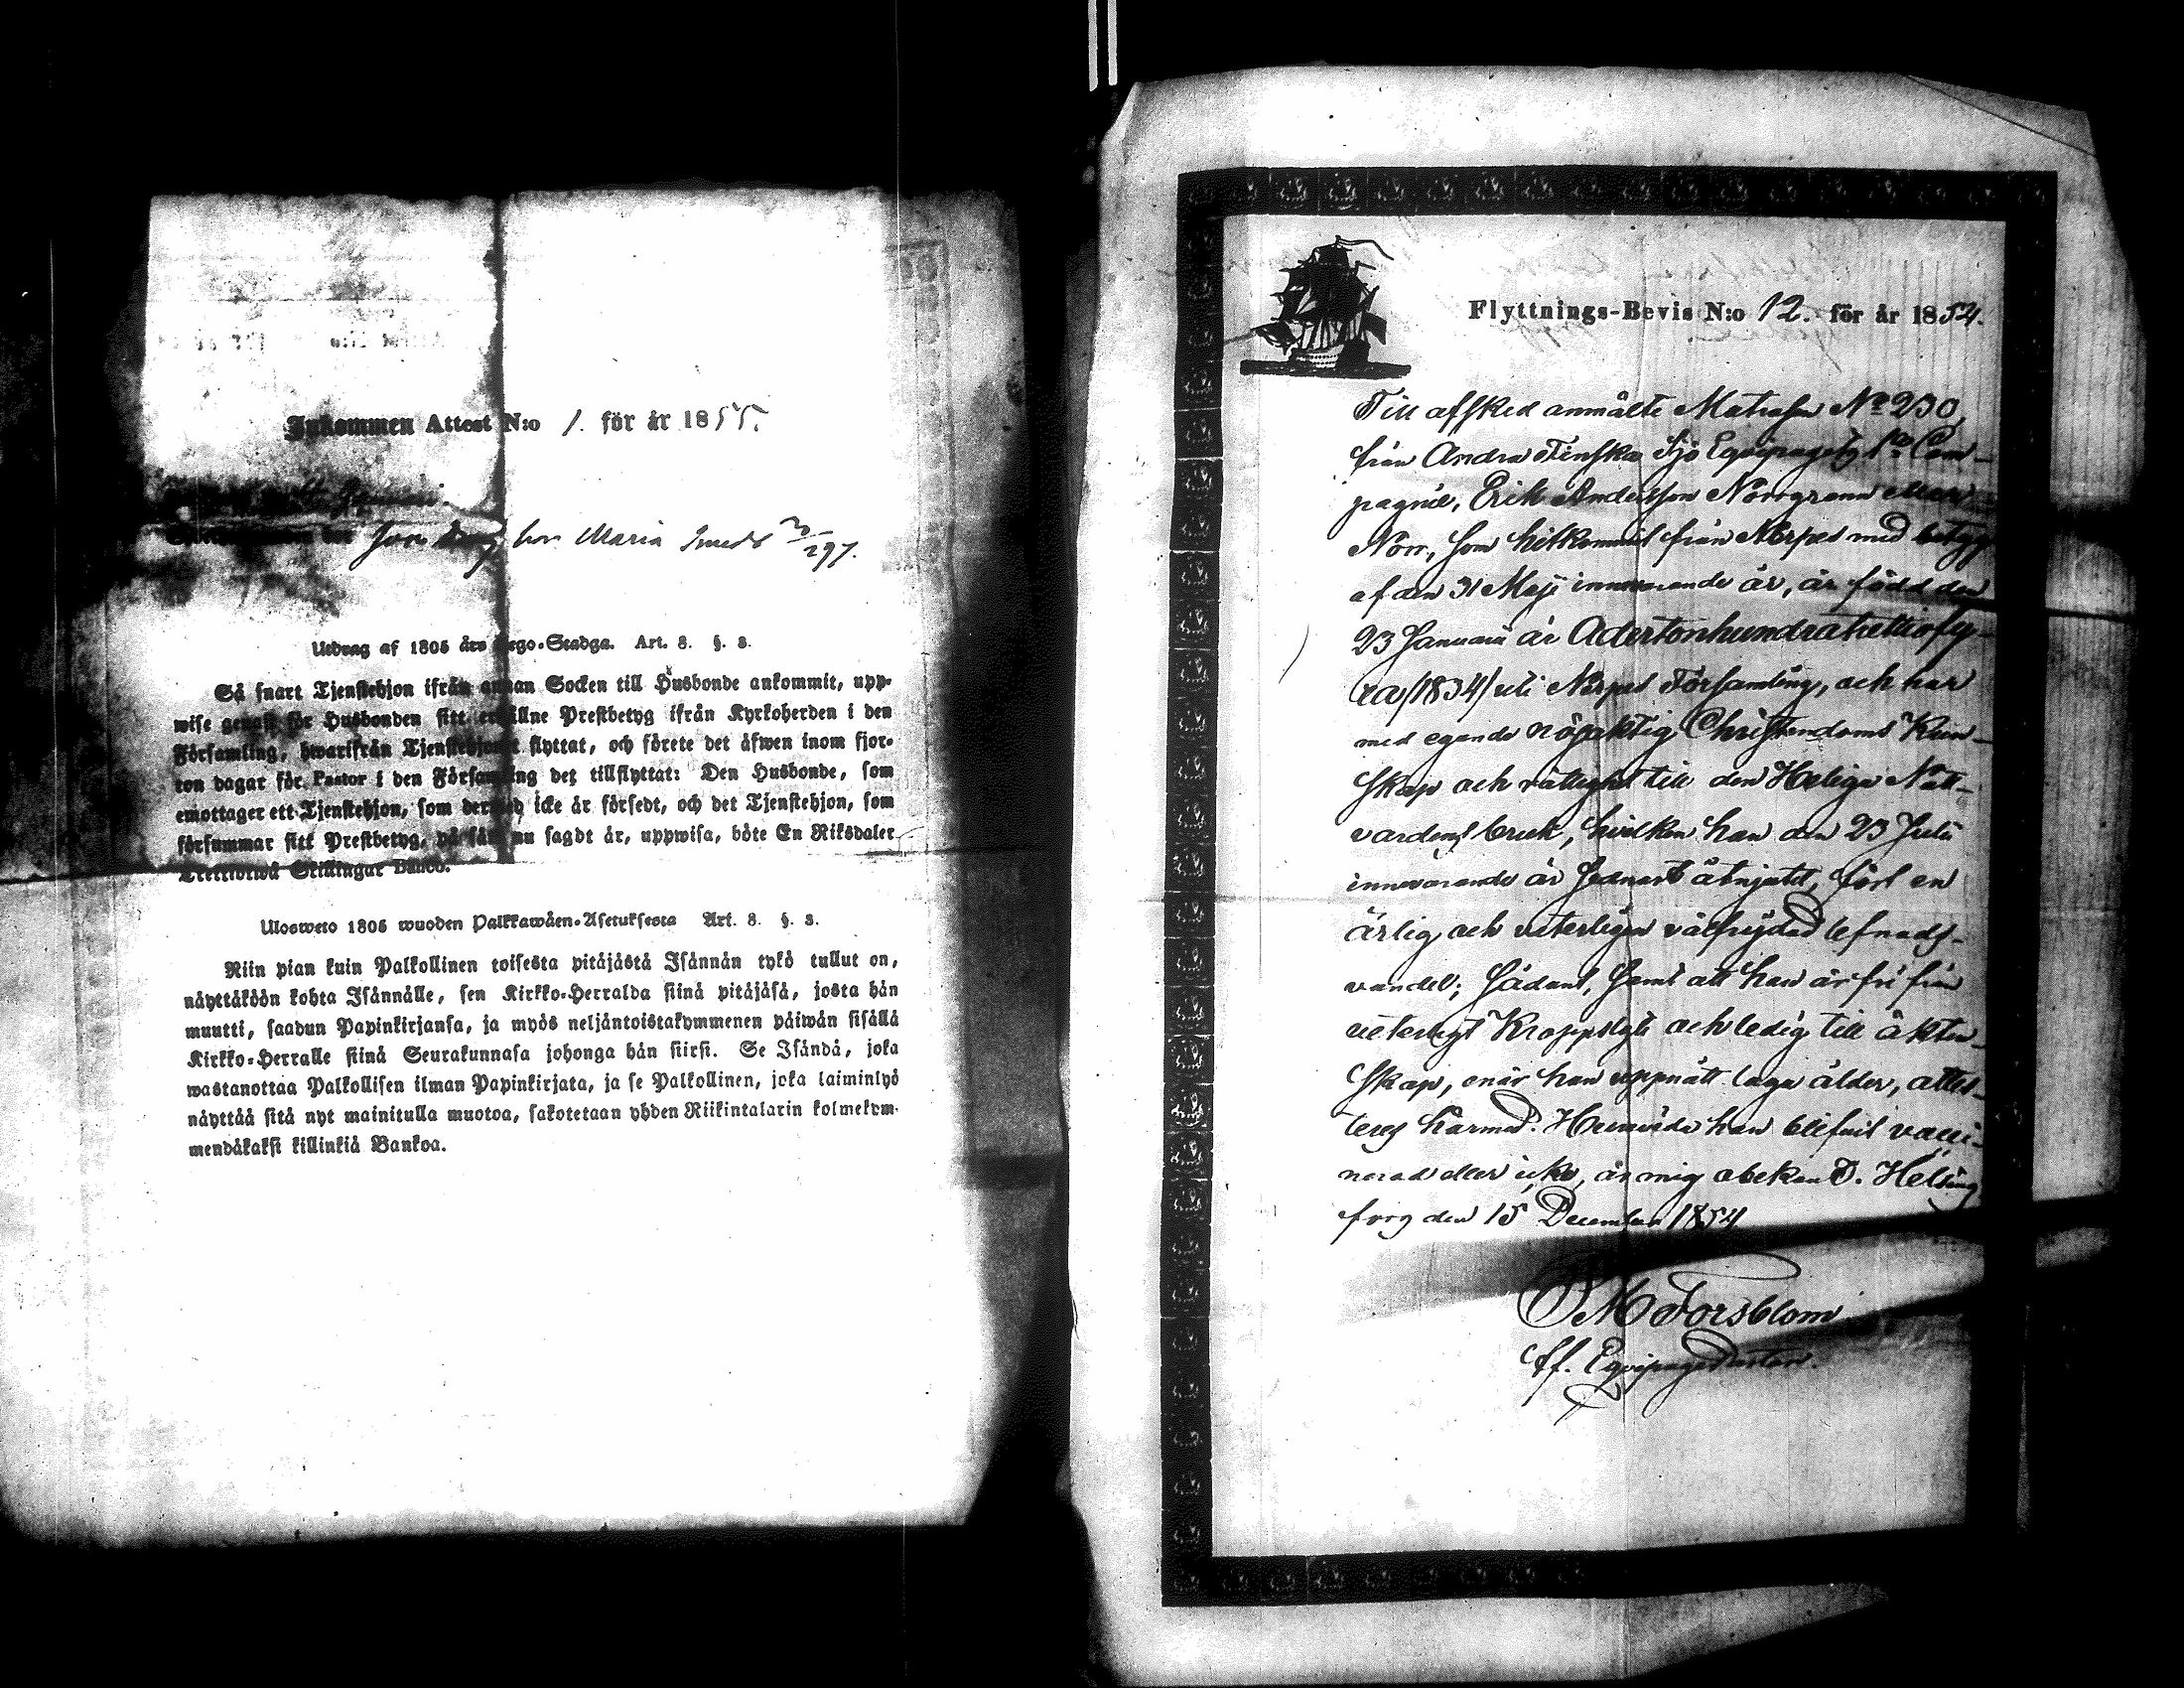 Inkommen Attest N:o 1. för år 1855.
hos Maria Smeds 3/297.
Utdrag af 1805 års Lego-Stadga. Art. 8. §. 3.
Så snart Tjenstehjon ifrån annan Socken till Husbonde ankommit, upp-
wise genast för Husbonden sitt erhållne Prestbetyg ifrån Kyrkoherden i den
Församling, hwarifrån Tjenstehjonet flyttat, och förete det äfwen inom fjor-
ton dagar för Pastor i den Församling det tillflyttat: Den Husbonde, som
emottager ett Tjenstehjon, som dermed icke är försedt, och det Tjenstehjon, som
försummar sitt Prestbetyg, på sätt nu sagdt är, uppwisa, böte En Riksdaler
Trettiotwå Skillingar Banco.
Ulosweto 1805 wuoden Palkkawäen-Asetuksesta Art. 8. §. 3.
Niin pian kuin Palkollinen toisesta pitäjästä Isännän tykö tullut on,
näyttäköön kohta Isännälle, sen Kirkko-Herralda siinä pitäjäsä, josta hän
muutti, saadun Papinkirjansa, ja myös neljäntoistakymmenen päiwän sisällä
Kirkko-Herralle siinä Seurakunnasa johonga hän siirsi. Se Isändä, joka
wastanottaa Palkollisen ilman Papinkirjata, ja se Palkollinen, joka laiminlyö
näyttää sitä nyt mainitulla muotoa, sakotetaan yhden Riikintalarin kolmekym-
mendäkaksi killinkiä Bankoa.
Flyttnings-Bevis N:o 12. för år 1854.
Till afsked anmälte Matrosen No 230,
från Andra Finska Sjö Equipagets 1a Com-
pagnie, Erik Andersson Norrgrann eller
Norr, som hitkommit från Nerpes med betyg
af den 31 Maji innevarande år, är född den
23 Januarii år Adertonhundratrettiofy-
ra /1834/ uti Nerpes Församling, och har
med egande nöjaktig Christendoms Kun-
skap och rättighet till den Heliga Natt-
vardens bruk, hvilken han den 23 Julii
innevarande år sednast åtnjutit, fört en
ärlig och veterligen välfrejdad lefnads-
vandel; Sådant, samt att han är fri från
veterligt Kroppslyte och ledig till äkten-
skap, enär han uppnått laga ålder, attes-
teras härmed. Huruvida han blifvit vacci-
nerad eller icke, är mig obekant. Helsing
fors den 15 December 1854
M Forsblom
tf. Equipage Pastor.